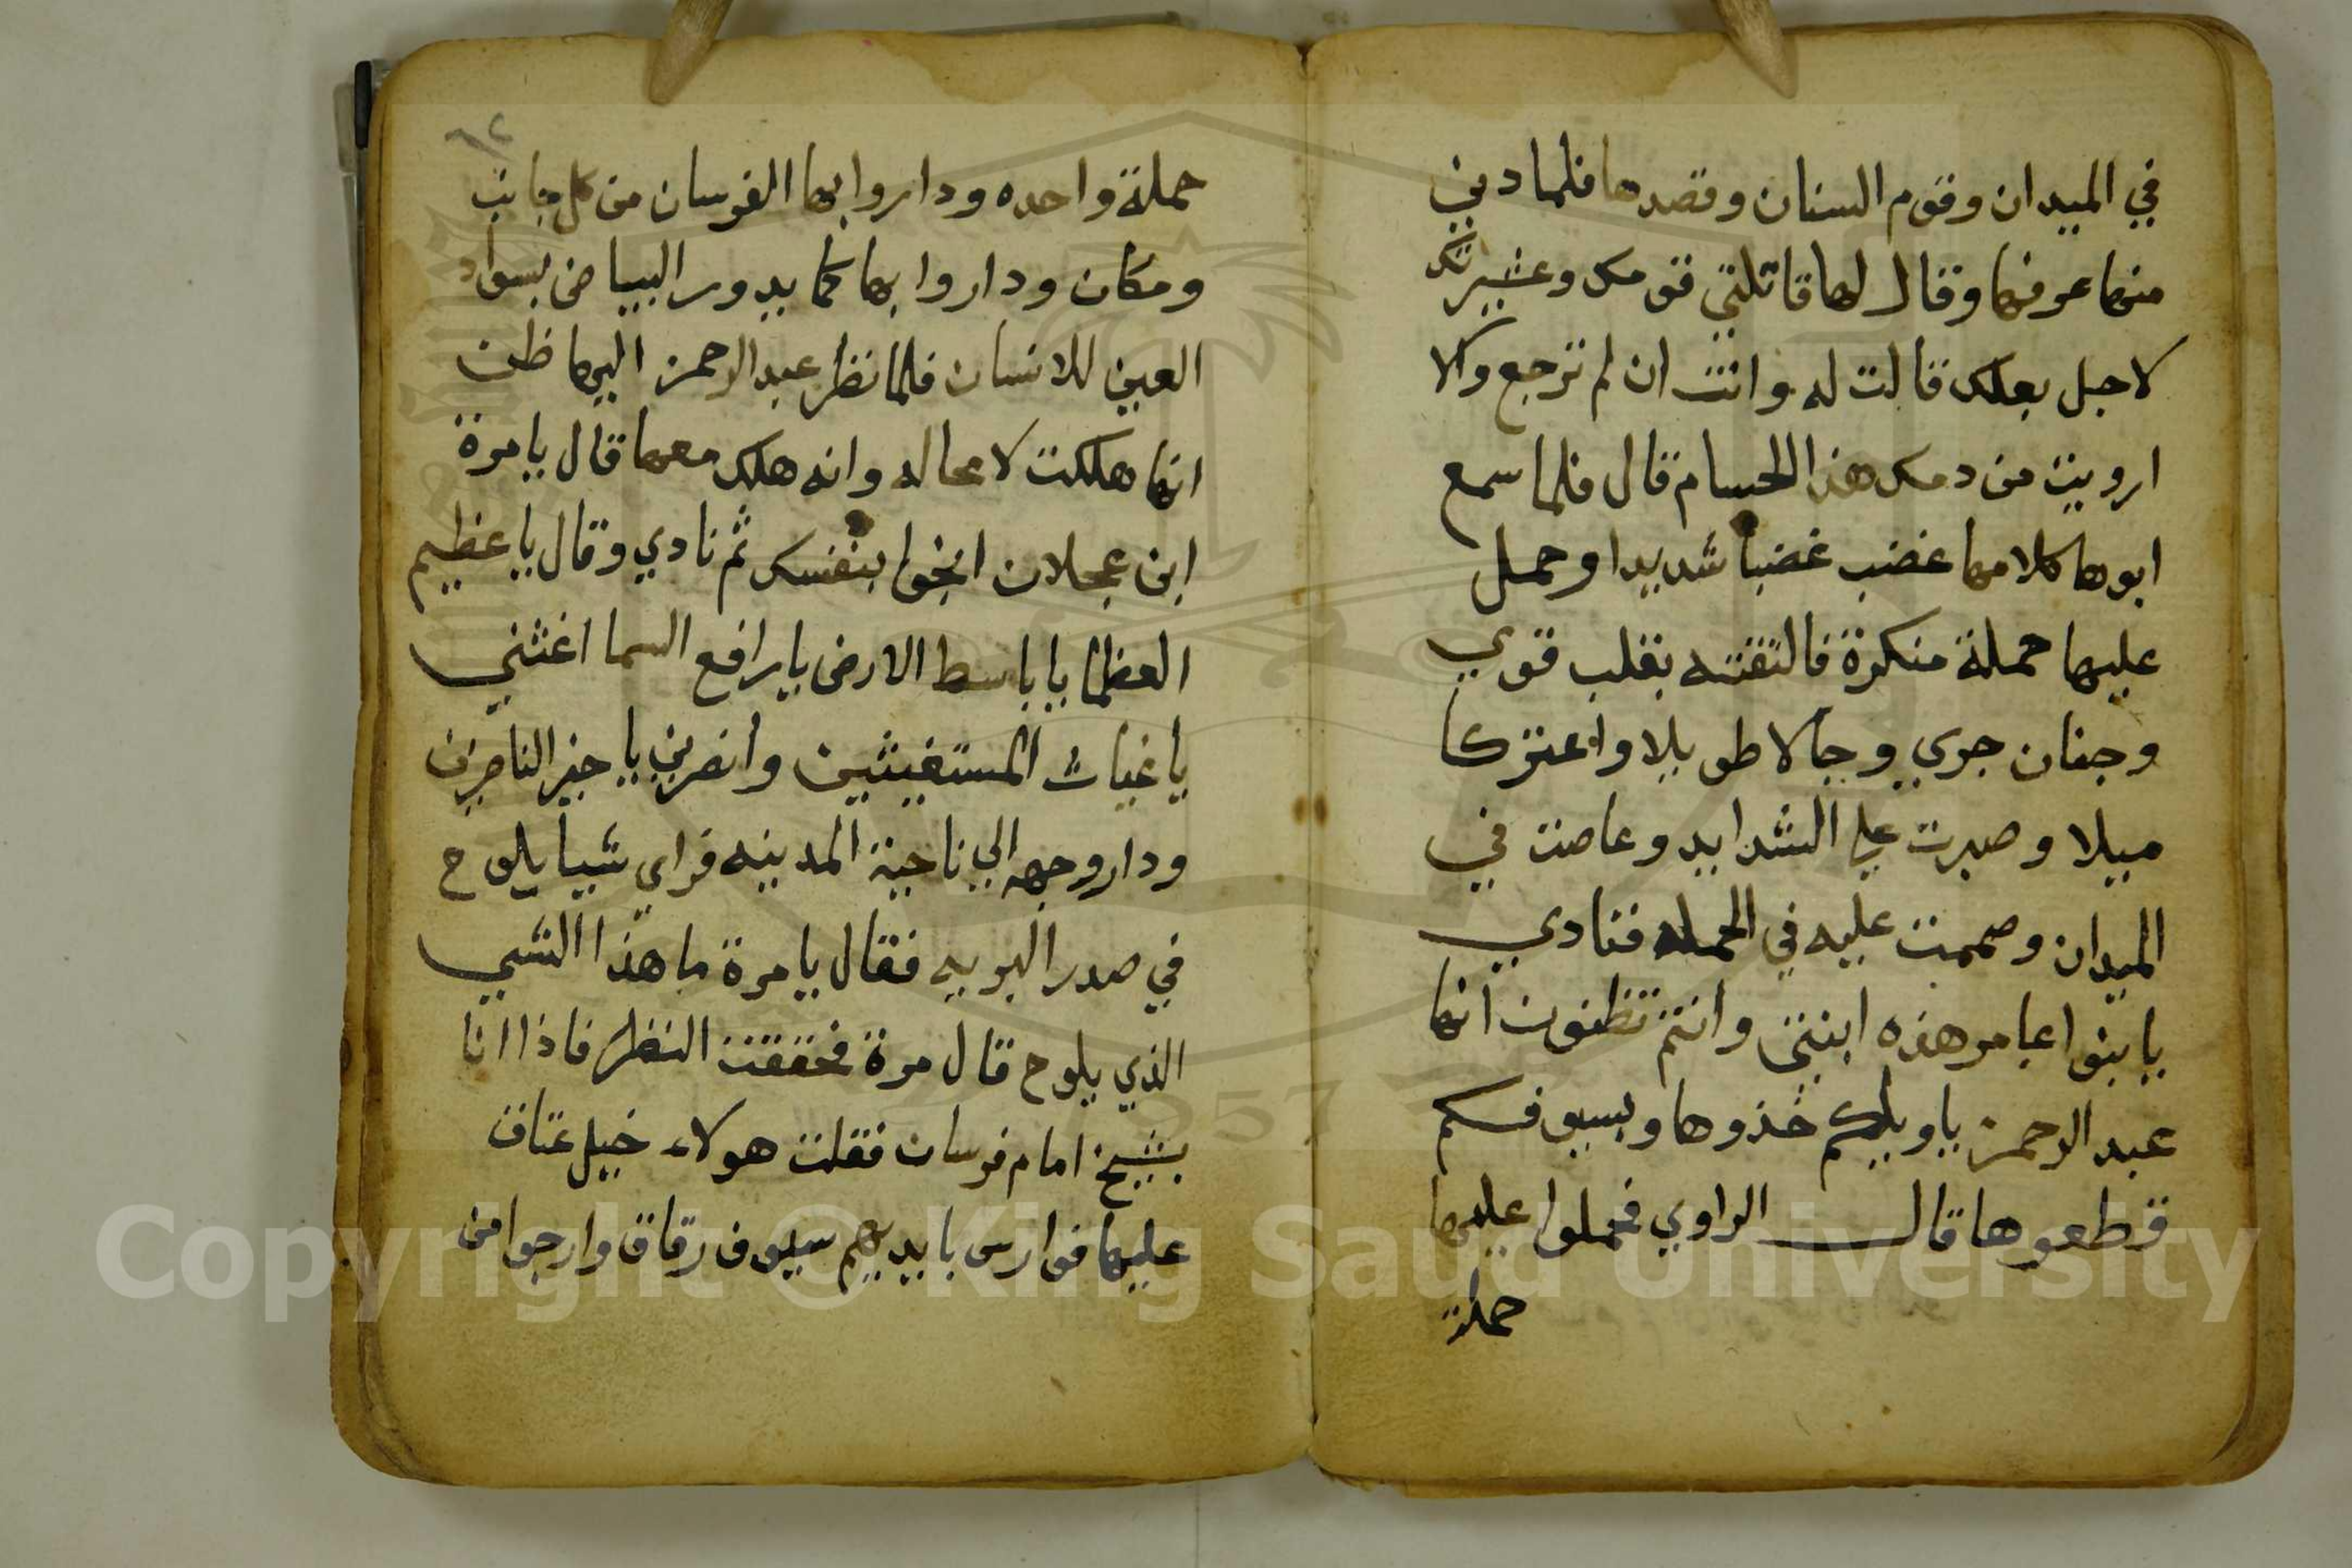 في الميدان وقوم السنان وقصدها فلما دني
منها عرفها وقال لها قاتلتي قومك وعشيرتك
لاجل بعلك قالت له وانت ان لم ترجع والا
ارويت من دمك هذا الحسام قال فلما سمع
ابوها كلامها غضب غضبا شديدا وحمل
عليها حملة منكرة فالتقته بقلب قوي
وجنان جري وجالا طويلا واعتركا
ميلا وصبرت علي الشدايد وغاصت في
الميدان وصممت عليه في الحمله فنادي
يا بنوا عامر هذه ابنتي وانتم تظنون انها
عبد الرحمن يا ويلكم خذوها وبسيوفكم
قطعوها قال الراوي فحملوا عليها
حملة
٦٢
حملة واحده وداروا بها الفرسان من كل جانب
ومكان وداروا بها كما يدور البياض بسواد
العين للانسان فلما نظر عبد الرحمن اليها ظن
انها هلكت لا محاله وانه هلك معها قال يا مرة
ابن عجلان انجوا بنفسك ثم نادي وقال يا عظيم
العظما يا باسط الارض يا رافع السما اغثني
يا غياث المستغيثين وانصرني يا خير الناصرين
ودار وجهه الي ناحية المدينه فراي شيا يلوح
في صدر البريه فقال يا مرة ما هذا الشي
الذي يلوح قال مرة فحققت النظر فاذا انا
بشيخ امام فرسان فقلت هولاء خيل عتاق
عليها فوارس بايديهم سيوف رقاق وارجوا من
Copyright © King Saud University
1957